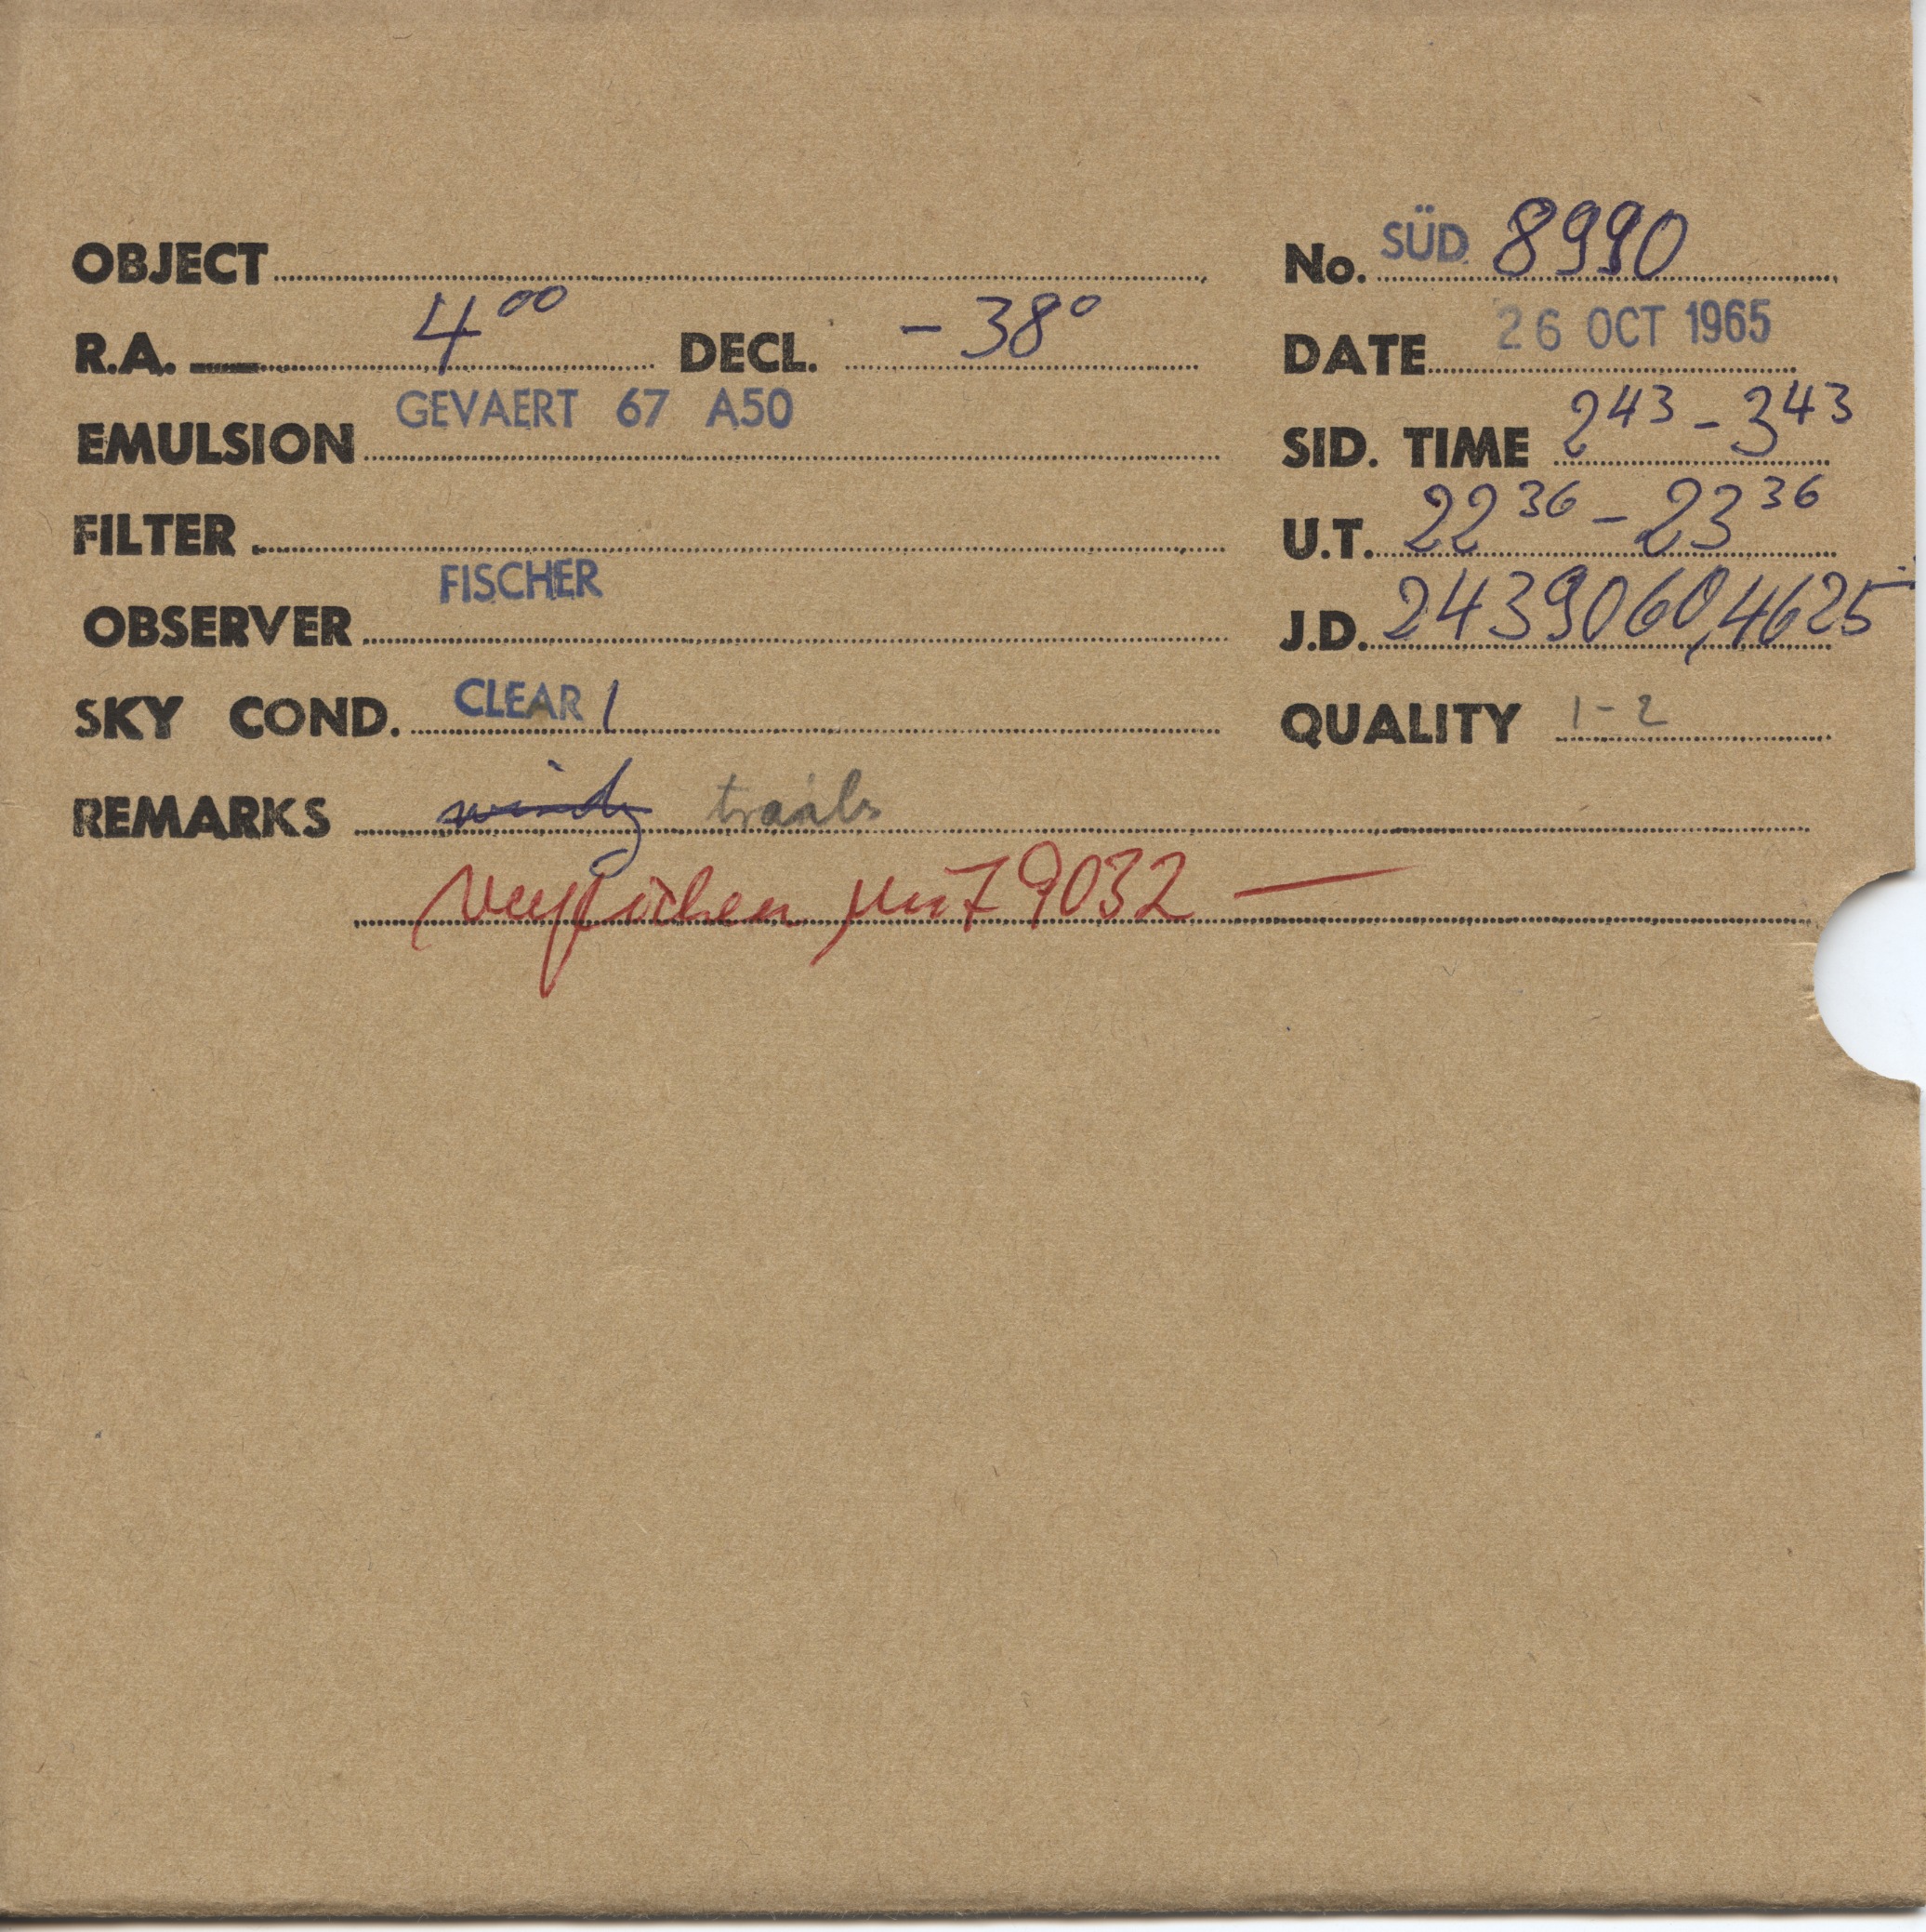 OBJECT
No. SÜD 8990
R.A. 4⁰⁰ DECL. -38°
DATE 26 OCT 1965
EMULSION GEVAERT 67 A50
SID. TIME 2⁴³ - 3⁴³
FILTER
U.T. 22³⁶ - 23³⁶
OBSERVER FISCHER
J.D. 2439060,4625
SKY COND. CLEAR 1
QUALITY 1-2
REMARKS windy trails
verglichen mit 9032 —